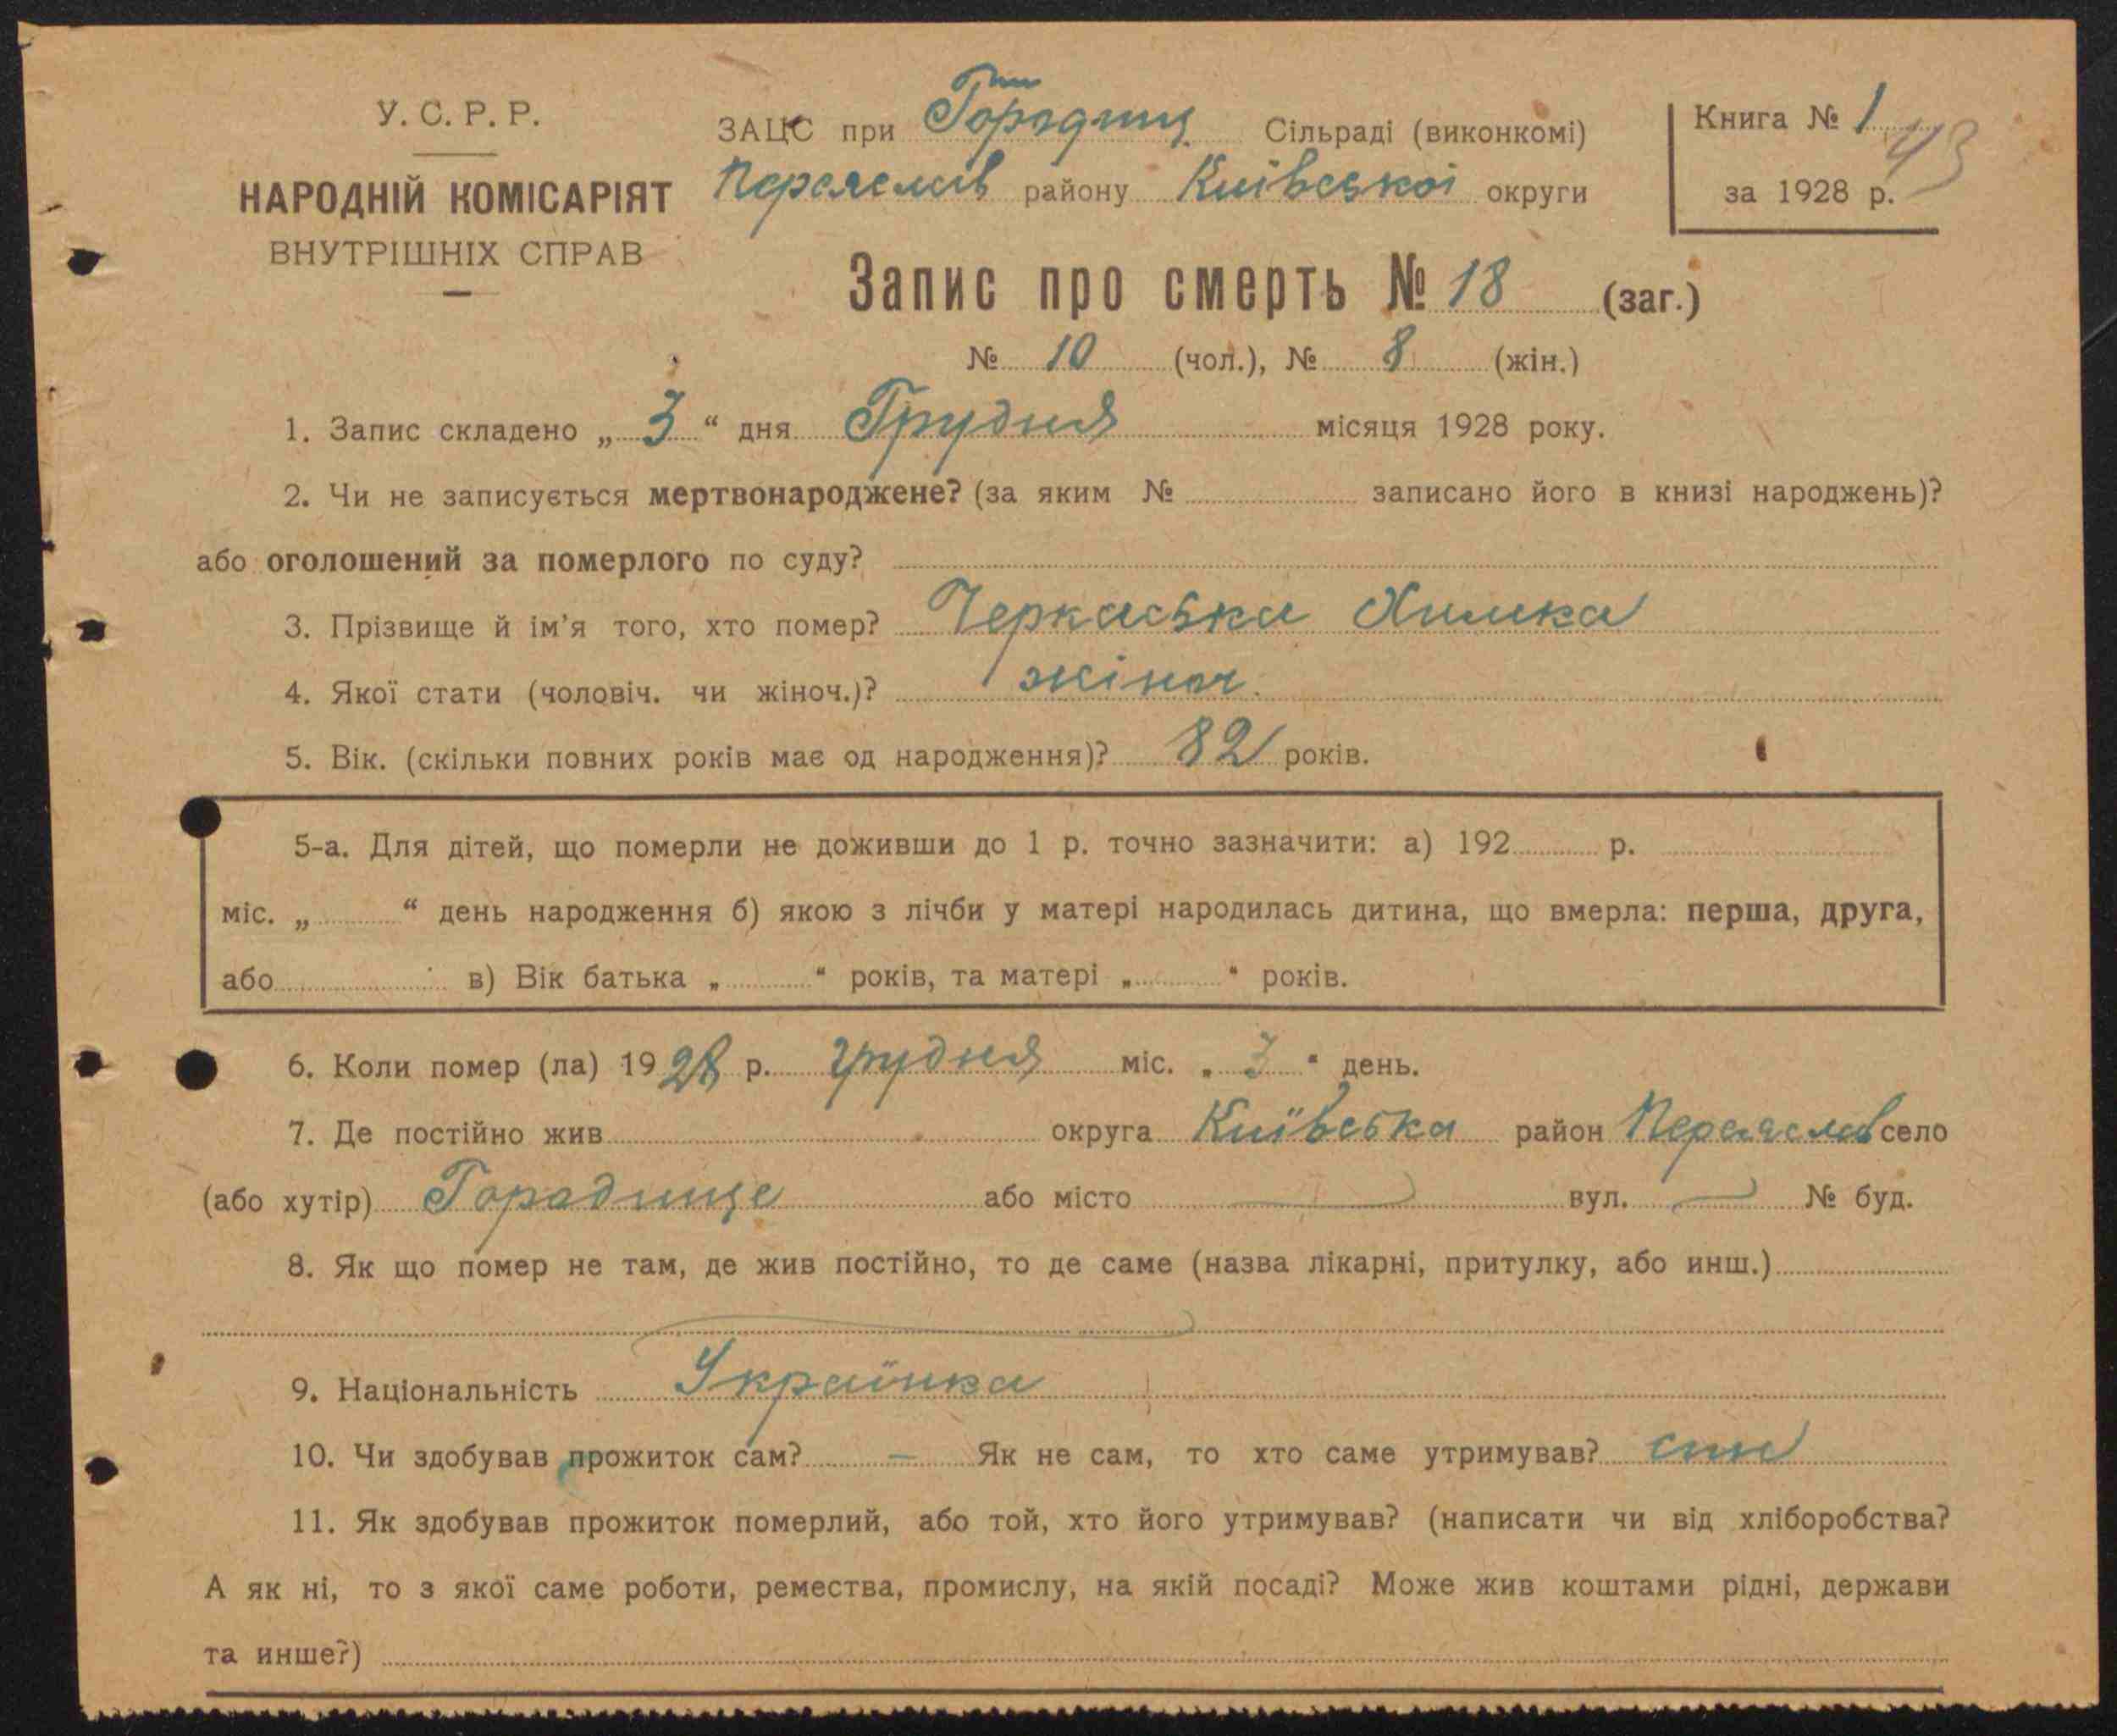 У. С. Р. Р.
НАРОДНІЙ КОМІСАРІЯТ
ВНУТРІШНІХ СПРАВ
ЗАЦС при Городищ. Сільраді (виконкомі)
Переяслав району Київської округи
Книга № 1
43
за 1928 р.
Запис про смерть № 18 (заг.)
№ 10 (чол.), № 8 (жін.)
1. Запис складено „ 3 “ дня Грудня місяця 1928 року.
2. Чи не записується мертвонароджене? (за яким № записано його в книзі народжень)?
або оголошений за померлого по суду?
3. Прізвище й ім’я того, хто помер? Черкаська Химка
4. Якої стати (чоловіч. чи жіноч.)? жіноч.
5. Вік. (скільки повних років має од народження)? 82 років.
5-а. Для дітей, що померли не доживши до 1 р. точно зазначити: а) 192 р.
міс. „ “ день народження б) якою з лічби у матері народилась дитина, що вмерла: перша, друга,
або в) Вік батька „ “ років, та матері „ “ років.
6. Коли помер (ла) 1928 р. грудня міс. „ 3 “ день.
7. Де постійно жив округа Київська район Переяслав село
(або хутір) Городище або місто вул. № буд.
8. Як що помер не там, де жив постійно, то де саме (назва лікарні, притулку, або инш.)
9. Національність Українка
10. Чи здобував прожиток сам? — Як не сам, то хто саме утримував? син
11. Як здобував прожиток померлий, або той, хто його утримував? (написати чи від хліборобства?
А як ні, то з якої саме роботи, ремества, промислу, на якій посаді? Може жив коштами рідні, держави
та инше?)